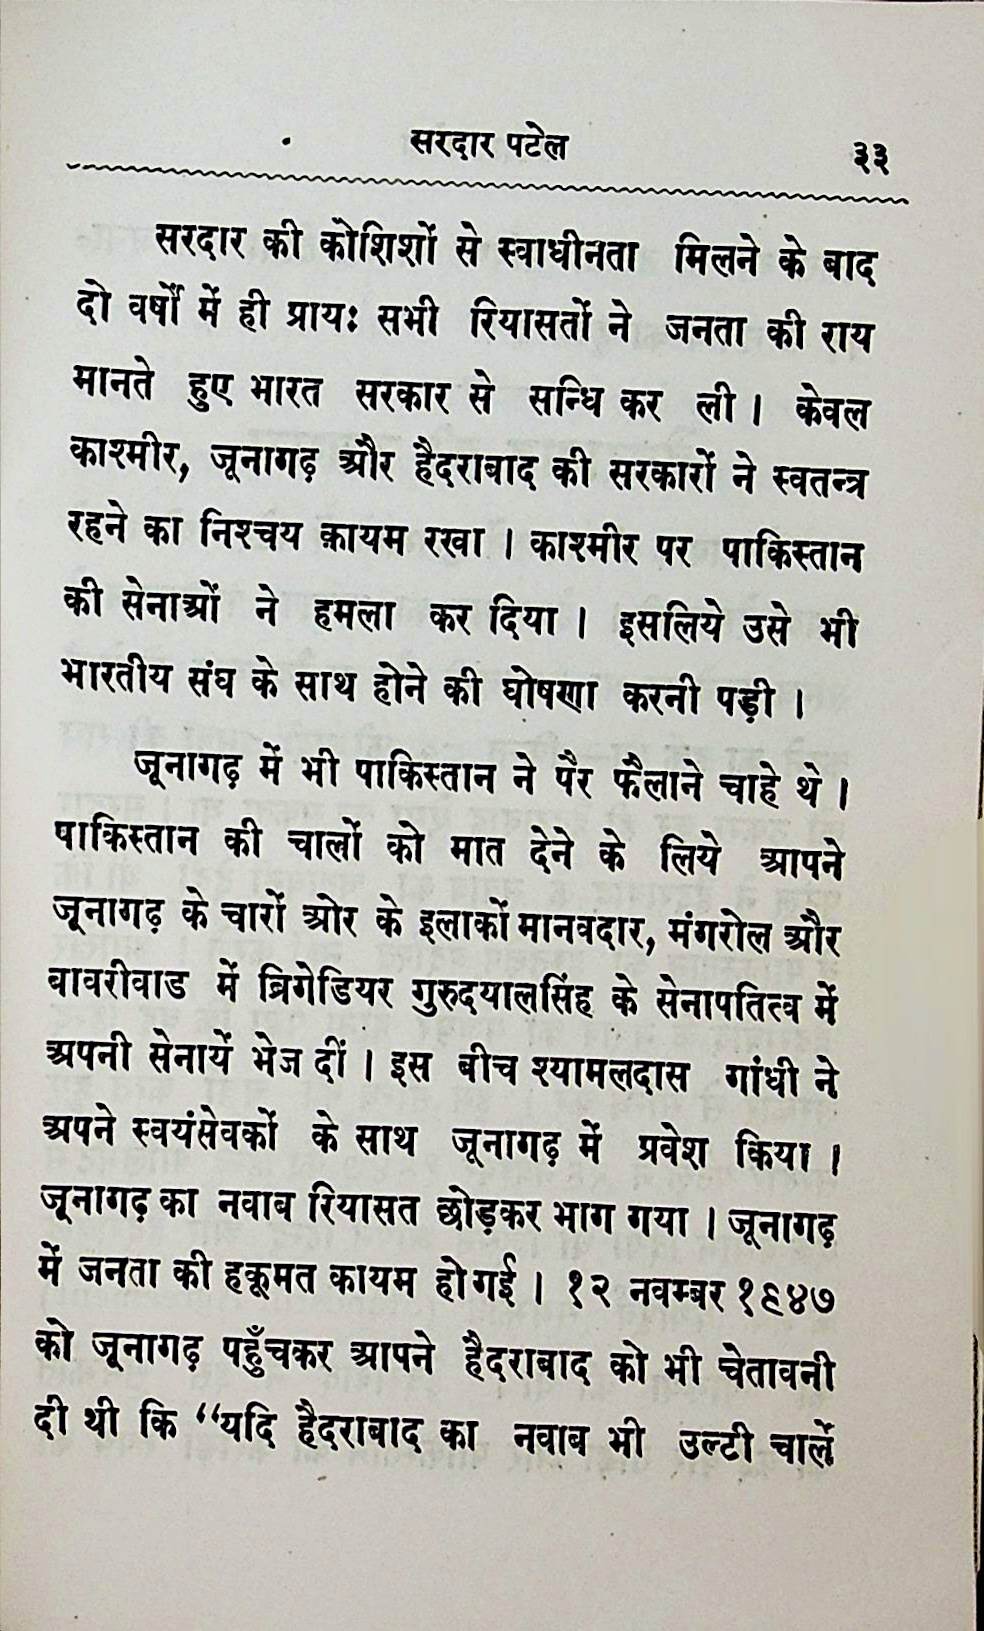 सरदार पटेल ३३
सरदार की कोशिशों से स्वाधीनता मिलने के बाद
दो वर्षों में ही प्रायः सभी रियासतों ने जनता की राय
मानते हुए भारत सरकार से सन्धि कर ली । केवल
काश्मीर, जूनागढ़ और हैदराबाद की सरकारों ने स्वतन्त्र
रहने का निश्चय क़ायम रखा । काश्मीर पर पाकिस्तान
की सेनाओं ने हमला कर दिया । इसलिये उसे भी
भारतीय संघ के साथ होने की घोषणा करनी पड़ी ।
जूनागढ़ में भी पाकिस्तान ने पैर फैलाने चाहे थे ।
पाकिस्तान की चालों को मात देने के लिये आपने
जूनागढ़ के चारों ओर के इलाकों मानवदार, मंगरोल और
बावरीवाड में ब्रिगेडियर गुरुदयालसिंह के सेनापतित्व में
अपनी सेनायें भेज दीं । इस बीच श्यामलदास गांधी ने
अपने स्वयंसेवकों के साथ जूनागढ़ में प्रवेश किया ।
जूनागढ़ का नवाब रियासत छोड़कर भाग गया । जूनागढ़
में जनता की हकूमत कायम हो गई । १२ नवम्बर १९४७
को जूनागढ़ पहुँचकर आपने हैदराबाद को भी चेतावनी
दी थी कि “यदि हैदराबाद का नवाब भी उल्टी चालें